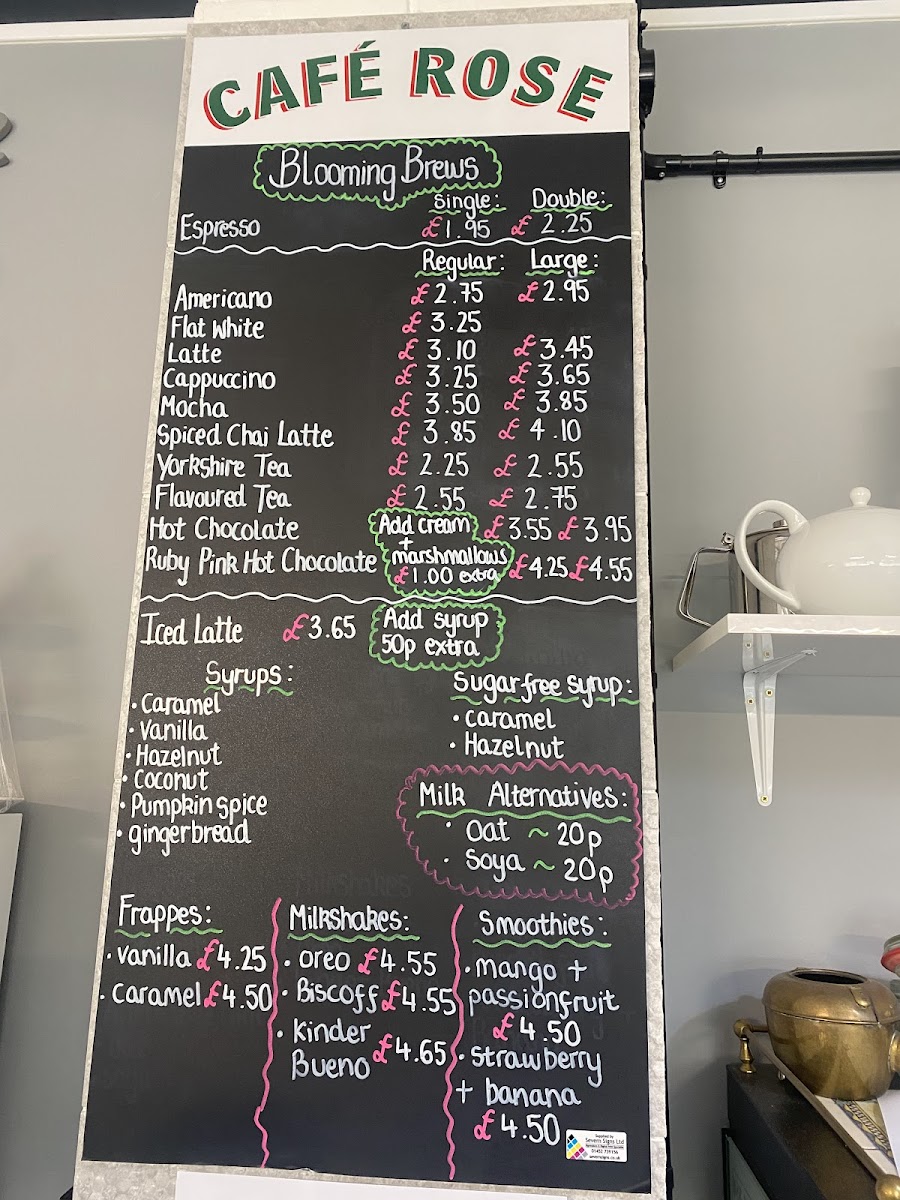 CAFÉ ROSE
Blooming Brews
Single: Double:
Espresso £1.95 £2.25
Regular: Large:
Americano £2.75 £2.95
Flat White £3.25
Latte £3.10 £3.45
Cappuccino £3.25 £3.65
Mocha £3.50 £3.85
Spiced Chai Latte £3.85 £4.10
Yorkshire Tea £2.25 £2.55
Flavoured Tea £2.55 £2.75
Hot Chocolate £3.55 £3.95
Ruby Pink Hot Chocolate £4.25 £4.55
Add cream
+
marshmallows
£1.00 extra
Iced Latte £3.65
Add syrup
50p extra
Syrups:
• Caramel
• Vanilla
• Hazelnut
• Coconut
• Pumpkin spice
• gingerbread
Sugarfree syrup:
• caramel
• Hazelnut
Milk Alternatives:
• Oat ~ 20p
• Soya ~ 20p
Frappes:
• vanilla £4.25
• caramel £4.50
Milkshakes:
• oreo £4.55
• Biscoff £4.55
• Kinder
Bueno £4.65
Smoothies:
• mango +
passionfruit
£4.50
• strawberry
+ banana
£4.50
Supplied by
Severn Signs Ltd
01452 731356
severnsigns.co.uk